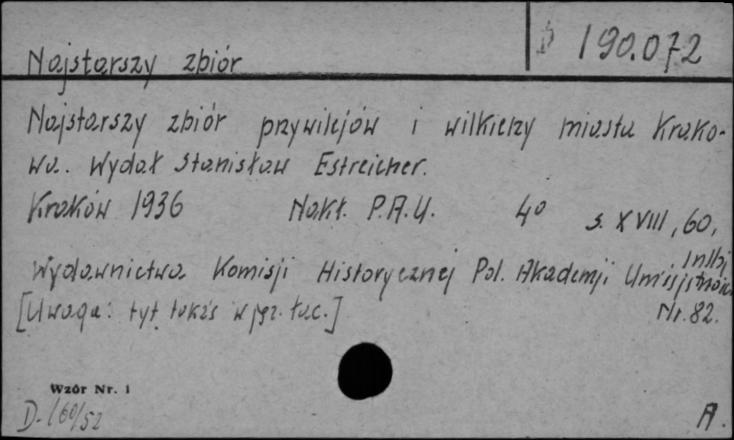 D 190.072
Najstarszy zbiór
Najstarszy zbiór przywilejów i wilkierzy miasta Krako-
wa. Wydał Stanisław Estreicher.
Kraków 1936 Nakł. P.A.U. 4º s. XVIII, 60,
Wydawnictwa Komisji Historycznej Pol. Akademji Umiejętności
[Uwaga: tyt. także w jęz. łac.] Nr. 82.
Wzór Nr. 1
D. 160/52 A.